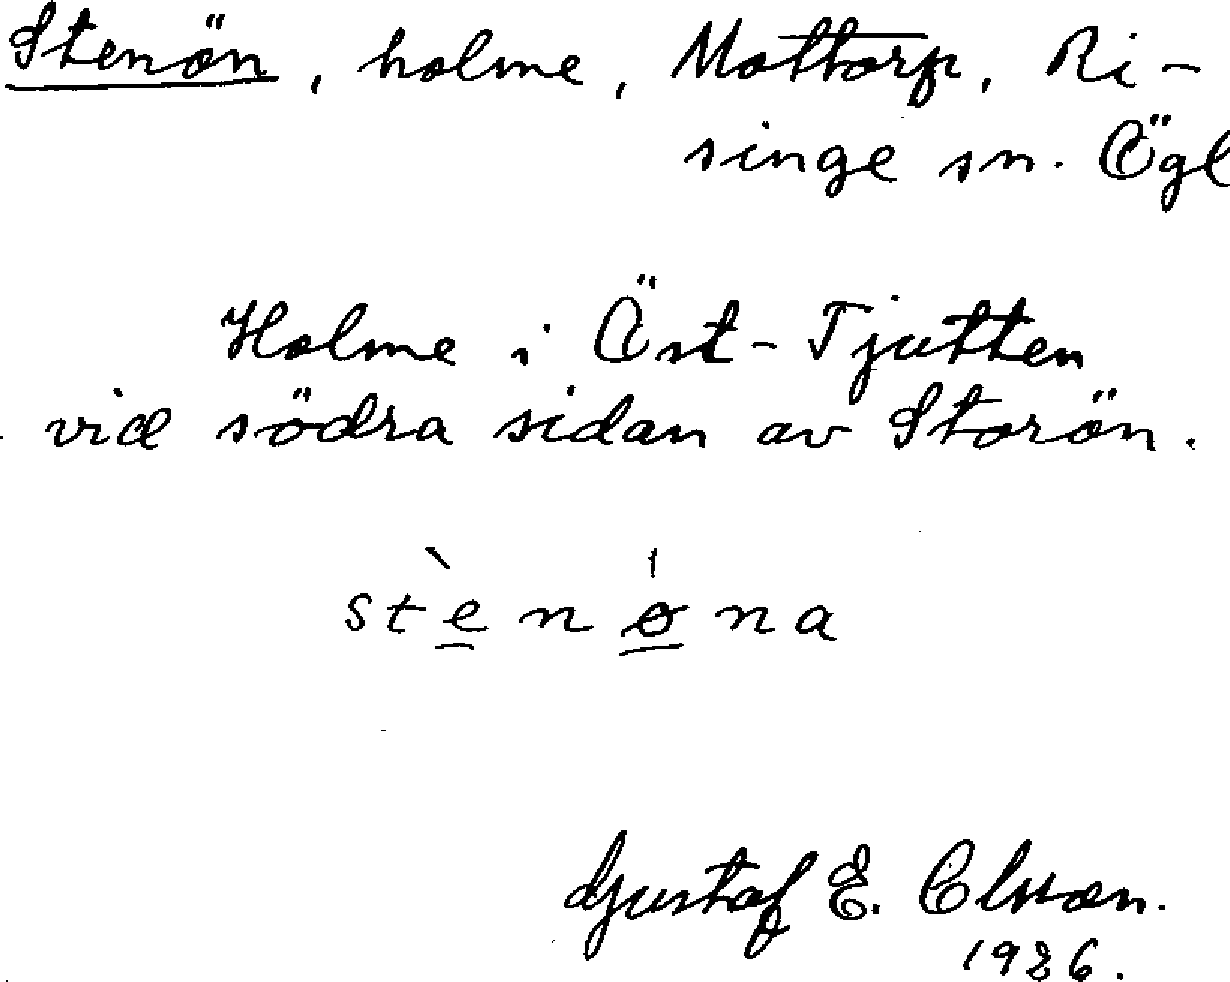 Stenön, holme, Mottorp, Ri-
singe sn. Ögl
Holme i Öst-Tjutten
vid södra sidan av Storön.
stè̱nǿ̱na
Gustaf E. Olsson.
1936.